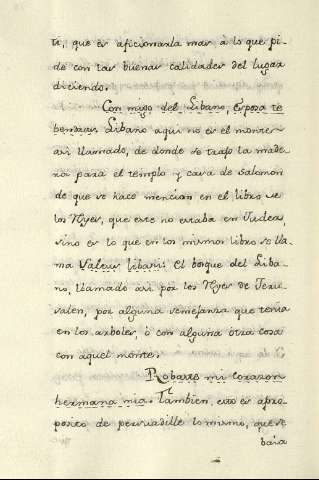 ti, que es aficionarla mas à lo que pi-
de con las buenas calidades del lugar
diciendo.
Con migo del Libano, Esposa te
bendras Libano aqui no es el monte
asi llamado, de donde se trajo la made-
ra para el templo y casa de Salomon
de que se hace mencion en el libro de
los Reyes, que este no estaba en Judea,
sino es lo que en los mismos libros se lla-
ma Saltus libani: El bosque del Liba-
no, llamado asi por los Reyes de Jeru-
salen, por alguna semejanza que tenia
en los arboles, ò con alguna otra cosa
con aquel monte.
Robaste mi corazon
hermana mia. Tambien, esto es apro-
posito de persuadille lo mismo, que se